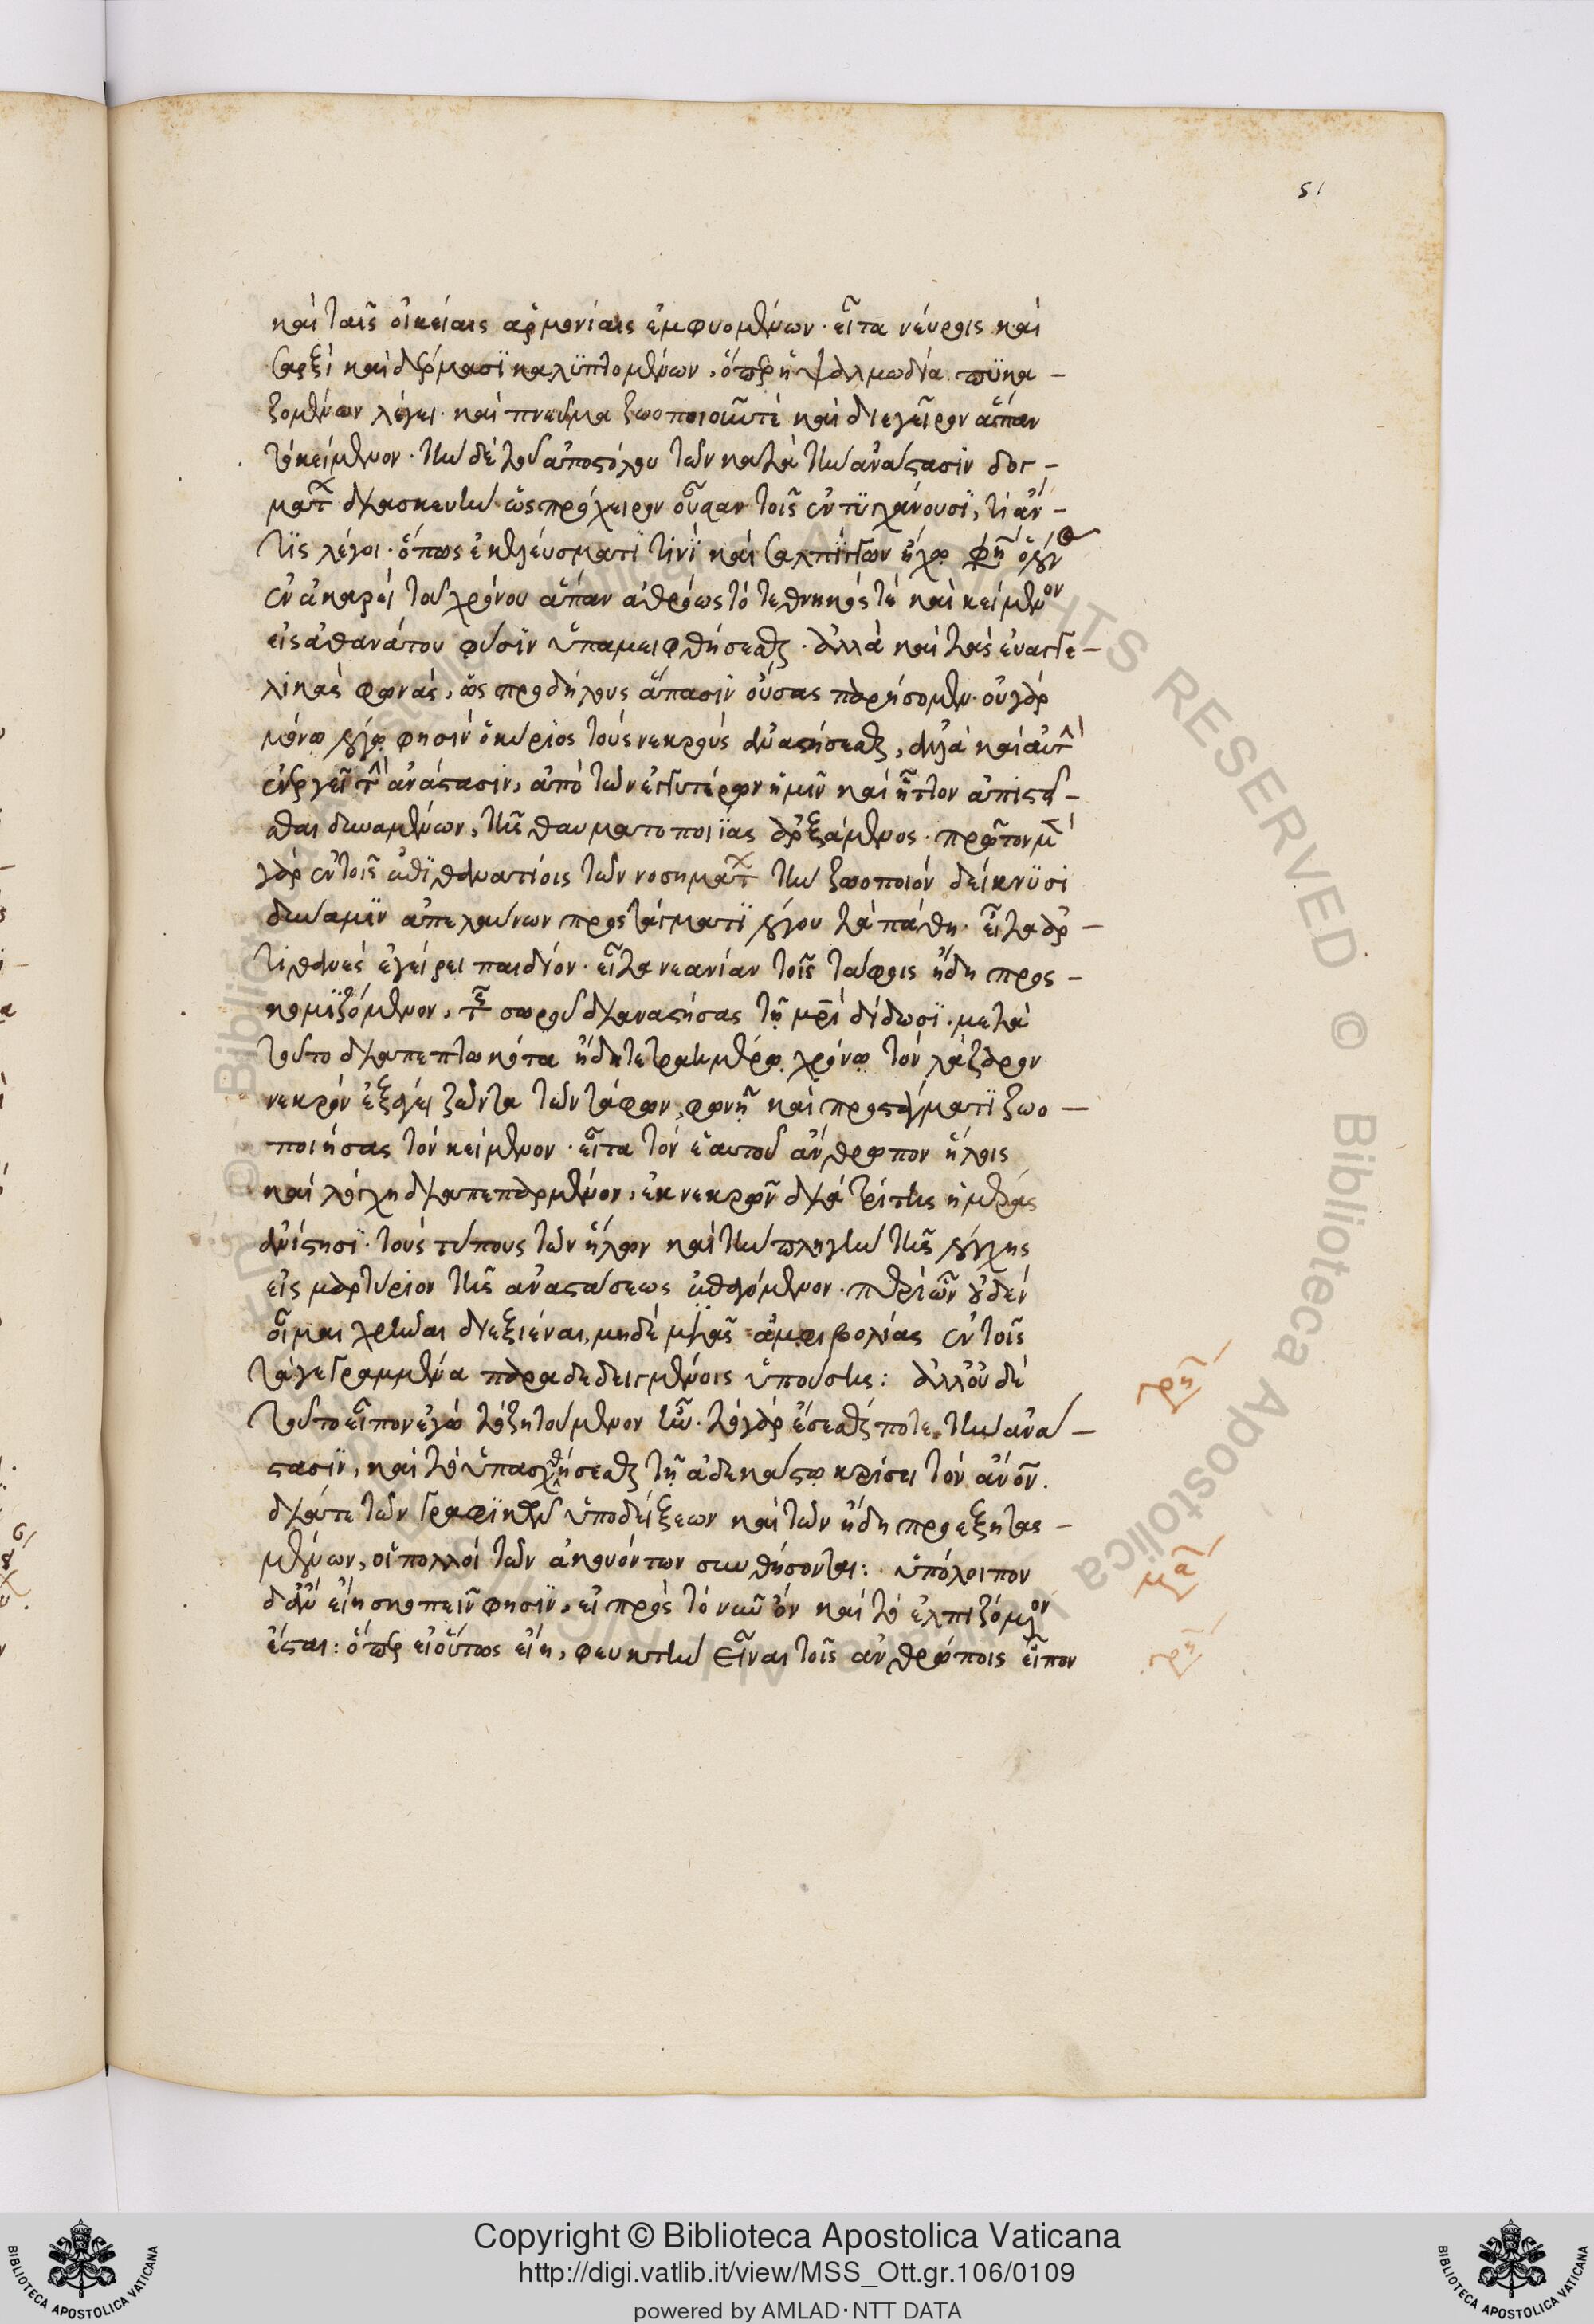 51
καὶ ταῖς οἰκείαις ἁρμονίαις ἐμφυομένων· εἶτα νεύροις καὶ
σαρξὶ καὶ δέρμασϊ καλϋπτομένων, ὅπερ ἡ ψαλμωδία πϋκα –
ζομένων λέγει· καὶ πνεῦμα ζωοποιοῦντὲ καὶ διεγεῖρον ἅπαν
τὸ κείμενον· τὴν δὲ τοῦ ἀποστόλου τῶν κατὰ τὴν ἀνάστασϊν δογ –
μάτων διασκευὴν ὡς πρόχειρον οὖσαν τοῖς ἐντϋγχάνουσϊ, τί ἄν –
τϊς λέγοι· ὅπως ἐκ κελεύσματϊ τινὶ καὶ σαλπίγγων ἤχῳ φησὶν ὁ λόγος
ἐν ἀκαρεῖ τοῦ χρόνου ἅπαν ἀθρόως τὸ τεθνηκός τὲ καὶ κείμενον
εἰς ἀθανάτου φύσϊν ὑπαμειφθήσεσθαι· ἀλλὰ καὶ τὰς εὐαγγε –
λικὰς φωνάς, ὡς προδήλους ἅπασϊν οὔσας παρήσομεν· οὐ γὰρ
μόνῳ λόγῳ φησὶν ὁ κύριος τοὺς νεκροὺς ἀναστήσεσθαι, ἀλλὰ καὶ αὐτὴν
ἐνεργεῖ τὴν ἀνάστασιν, ἀπὸ τῶν ἐγγυτέρων ἡμῖν καὶ ἧττον ἀπιστεῖ –
σθαι δυναμένων, τῆς θαυματοποιΐας ἀρξάμενος· πρῶτον μὲν
γὰρ ἐν τοῖς ἐπϊθανατίοις τῶν νοσημάτων τὴν ζωοποιὸν δείκνϋσι
δύναμϊν ἀπελαύνων προστάγματϊ λόγου τὰ πάθη· εἶτα ἀρ –
τιθανὲς ἐγείρει παιδίον· εἶτα νεανίαν τοῖς τάφοις ἤδη προς –
κομϊζόμενον, τῆς σοροῦ διαναστήσας τῇ μητρὶ δίδωσϊ· μετὰ
τοῦτο διαπεπτωκότα ἤδη τετραημέρῳ χρόνῳ τὸν λάζαρον
νεκρὸν ἐξάγει ζῶντα τῶν τάφων, φωνῇ καὶ προστάγματϊ ζωο –
ποιήσας τὸν κείμενον· εἶτα τὸν ἑαυτοῦ ἄνθρωπον ἥλοις
καὶ λόγχη διαπεπαρμένον, ἐκ νεκρῶν διὰ τρίτης ἡμέρας
ἀνίστησϊ· τοὺς τύπους τῶν ἥλων καὶ τὴν πληγὴν τῆς λόγχης
εἰς μαρτύριον τῆς ἀναστάσεως ἐπαγόμενον· περὶ ὧν οὐδὲν
οἶμαι χρῆναι διεξιέναι, μηδὲ μιᾶς ἀμφιβολίας ἐν τοῖς
τὰ γεγραμμένα παραδεδειγμένοις ὑπούσης: ἀλλ' οὐ δὲ
τοῦτο εἶπον ἐγὼ τὸ ζητούμενον ἦν· τὸ γὰρ ἔσεσθαί ποτε τὴν ἀνά –
στασϊν, καὶ τὸ ὑπαχθήσεσθαι τῇ ἀδεκάστῳ κρίσει τὸν ἄνθρωπον.
διά τε τῶν γραφϊκῶν ὑποδείξεων καὶ τῶν ἤδη προεξητασ –
μένων, οἱ πολλοὶ τῶν ἀκουόντων συνθήσονται: ὑπόλοιπον
δ' ἂν εἴη σκοπεῖν φησϊν, εἰ πρὸς τὸ νῦν ὂν καὶ τὸ ἐλπιζόμενον
ἔσται: ὅπερ εἰ οὕτως εἴη, φευκτὴν εἶναι τοῖς ἀνθρώποις εἶπον
γρη
μα
γρη
Copyright © Biblioteca Apostolica Vaticana
http://digi.vatlib.it/view/MSS_Ott.gr.106/0109
powered by AMLAD·NTT DATA
BIBLIOTECA APOSTOLICA VATICANA
BIBLIOTECA APOSTOLICA VATICANA